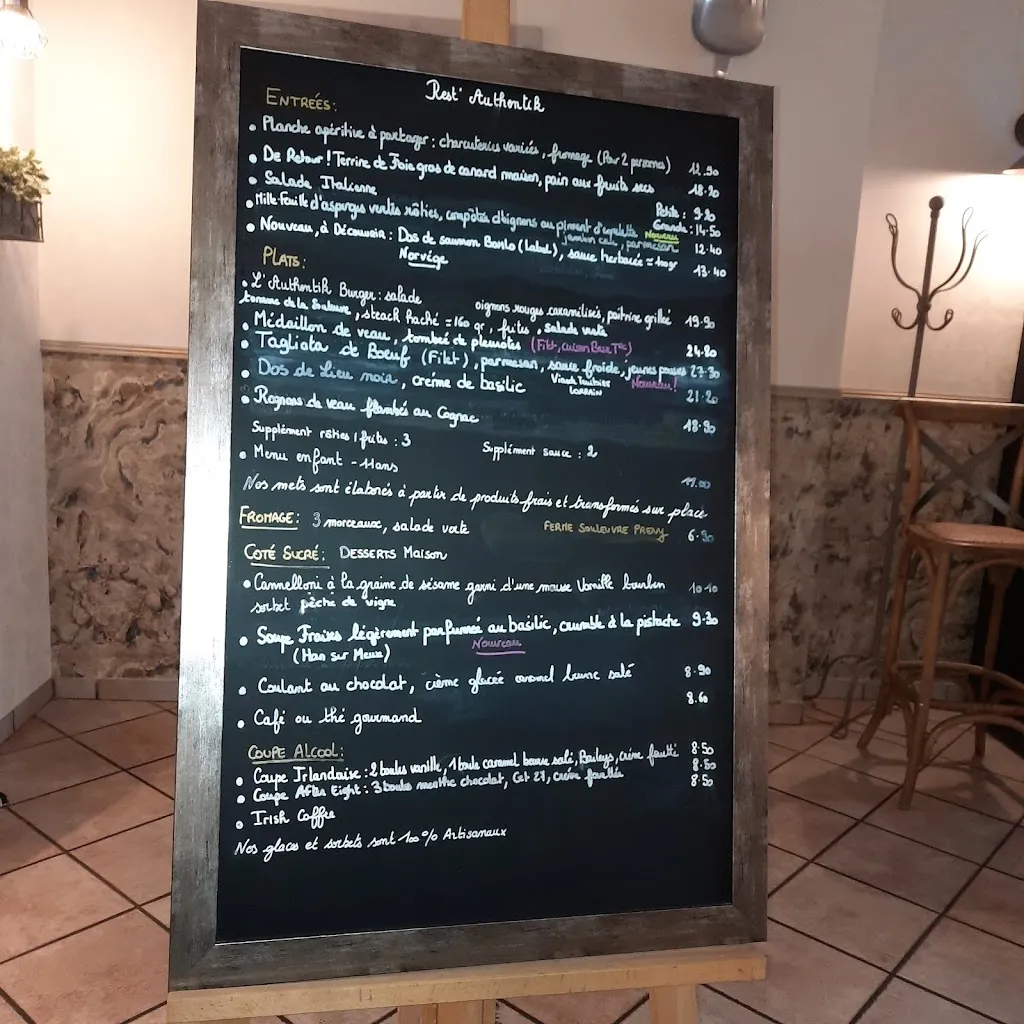 Rest' Authentik
ENTRÉES:
• Planche apéritive à partager : charcuteries variées, fromage (Pour 2 personnes)
• De Retour ! Terrine de Foie gras de canard maison, pain aux fruits secs 18.90
• Salade Italienne Petite : 9.90
Grande : 14.50
• Mille Feuille d'asperges vertes rôties, compotée d'oignons au piment d'espelette Nouveau
jambon cru, parmesan 12.40
• Nouveau, à Découvrir : Dos de saumon Bomlo (Label), sauce herbacée = 100gr 13.40
Norvège
PLATS:
• L'Authentik Burger : salade oignons rouges caramélisés, poitrine grillée 19.90
tomme de la Souleuvre, steack haché = 160 gr, frites, salade verte
• Médaillon de veau, tombée de pleurotes (Filet, cuisson Basse T°C) 24.80
• Tagliata de Boeuf (Filet), parmesan, sauce froide, jeunes pouses 27.30
Viande Tauribier Nouveau!
LORRAIN
• Dos de Lieu noir, crème de basilic 21.20
• Rognons de veau flambés au Cognac 18.90
Supplément rôties / frites : 3 Supplément sauce : 2
• Menu enfant - 11ans 11.00
Nos mets sont élaborés à partir de produits frais et transformés sur place
FROMAGE: 3 morceaux, salade verte FERME SOULEUVRE PRENY 6.90
COTÉ SUCRÉ: DESSERTS MAISON
• Cannelloni à la graine de sésame garni d'une mousse Vanille bourbon 10.10
sorbet pêche de vigne
• Soupe Fraises légèrement parfumée au basilic, crumble à la pistache 9.30
(Han sur Meuse) Nouveau
• Coulant au chocolat, crème glacée caramel beurre salé 8.90
• Café ou thé gourmand 8.60
COUPE ALCOOL:
• Coupe Irlandaise : 2 boules vanille, 1 boule caramel beurre salé, Baileys, crème fouettée 8.50
• Coupe After Eight : 3 boules menthe chocolat, Get 27, crème fouettée 8.50
• Irish Coffee 8.50
Nos glaces et sorbets sont 100% Artisanaux